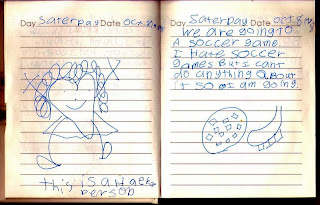 Day Saterpay Date oct 8
this is a
person
Day Saterpay Date oct 8
We are going to
A soccer game.
I Hate soccer
games But I cant
do anything about
it so i am going.